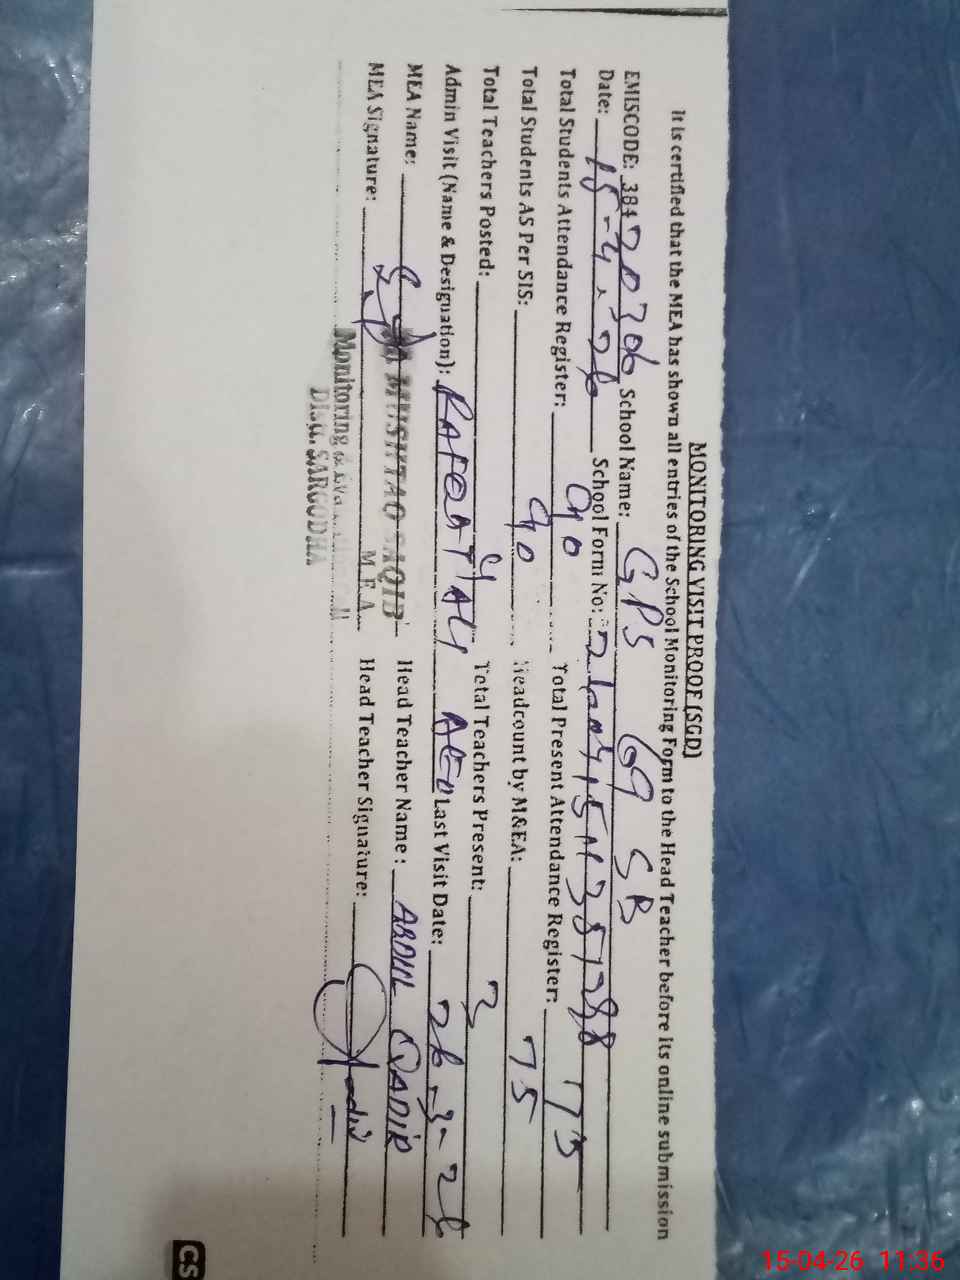 MONITORING VISIT PROOF (SGD)
It is certified that the MEA has shown all entries of the School Monitoring Form to the Head Teacher before its online submission
EMISCODE: 38420306 School Name: GPS 69 SB
Date: 15-4-26 School Form No:
Total Students Attendance Register: 90 Total Present Attendance Register: 75
Total Students AS Per SIS: 90 Headcount by M&EA: 75
Total Teachers Posted: 4 Total Teachers Present: 3
Admin Visit (Name & Designation): RAFAQAT ALI AEO Last Visit Date: 26-3-26
MEA Name: MUSHTAQ SAQIB Head Teacher Name: ABDUL QADIR
MEA Signature: M.E.A Head Teacher Signature: Qadir
Monitoring &
Distt. SARGODHA
CS
15-04-26 11:36